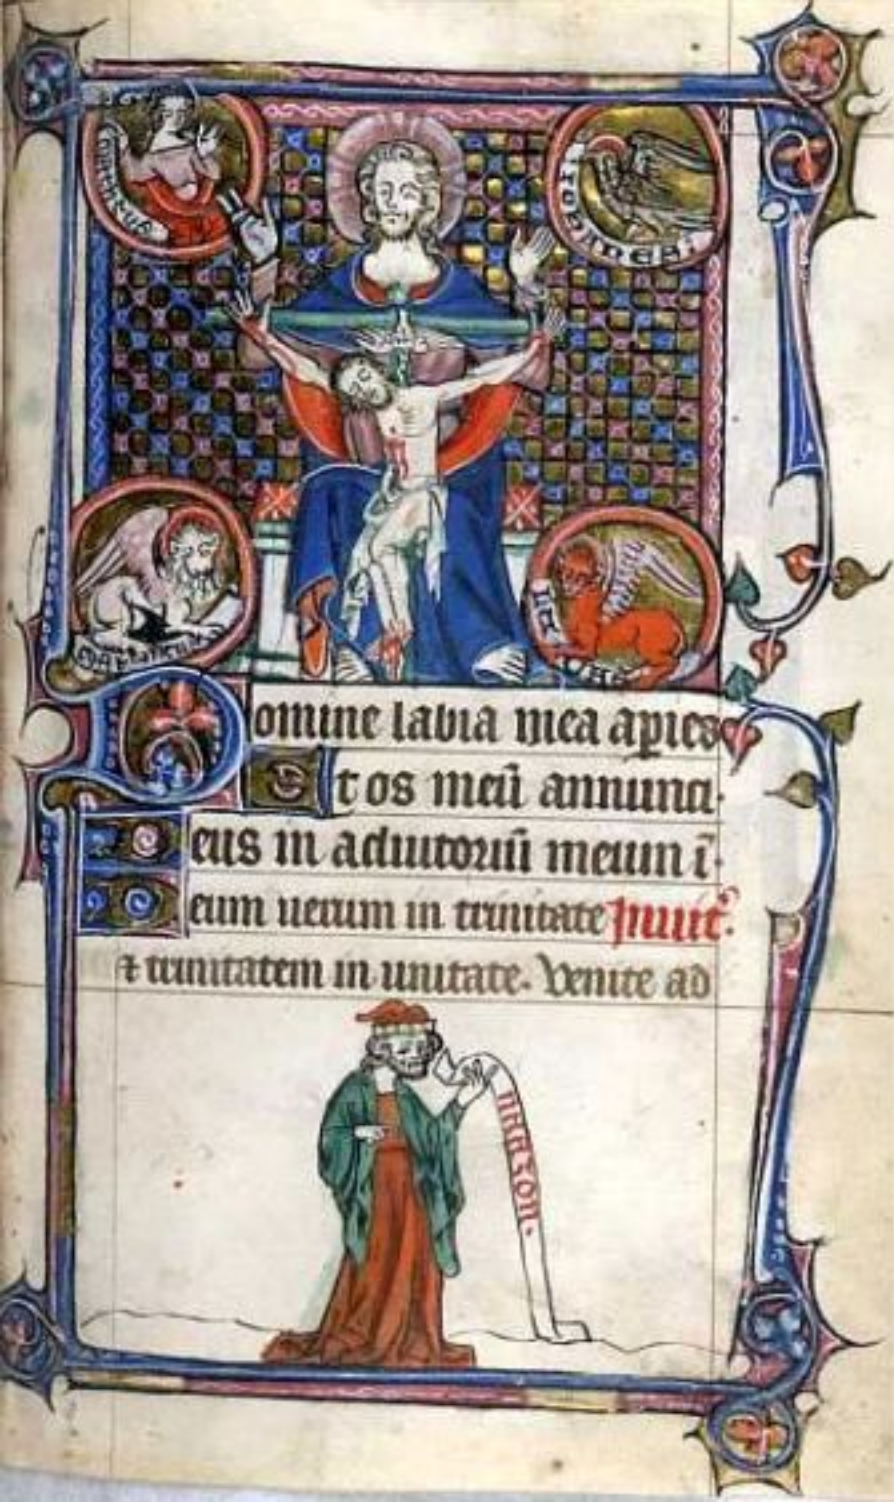 MATHEUS
IOHANES
LUCAS
Domine labia mea apies
Et os meū annunci·
Deus in adiutoriū meum ī·
Deum uerum in trinitate Inuit̄.
⁊ trinitatem in unitate. Venite ad
naazon.